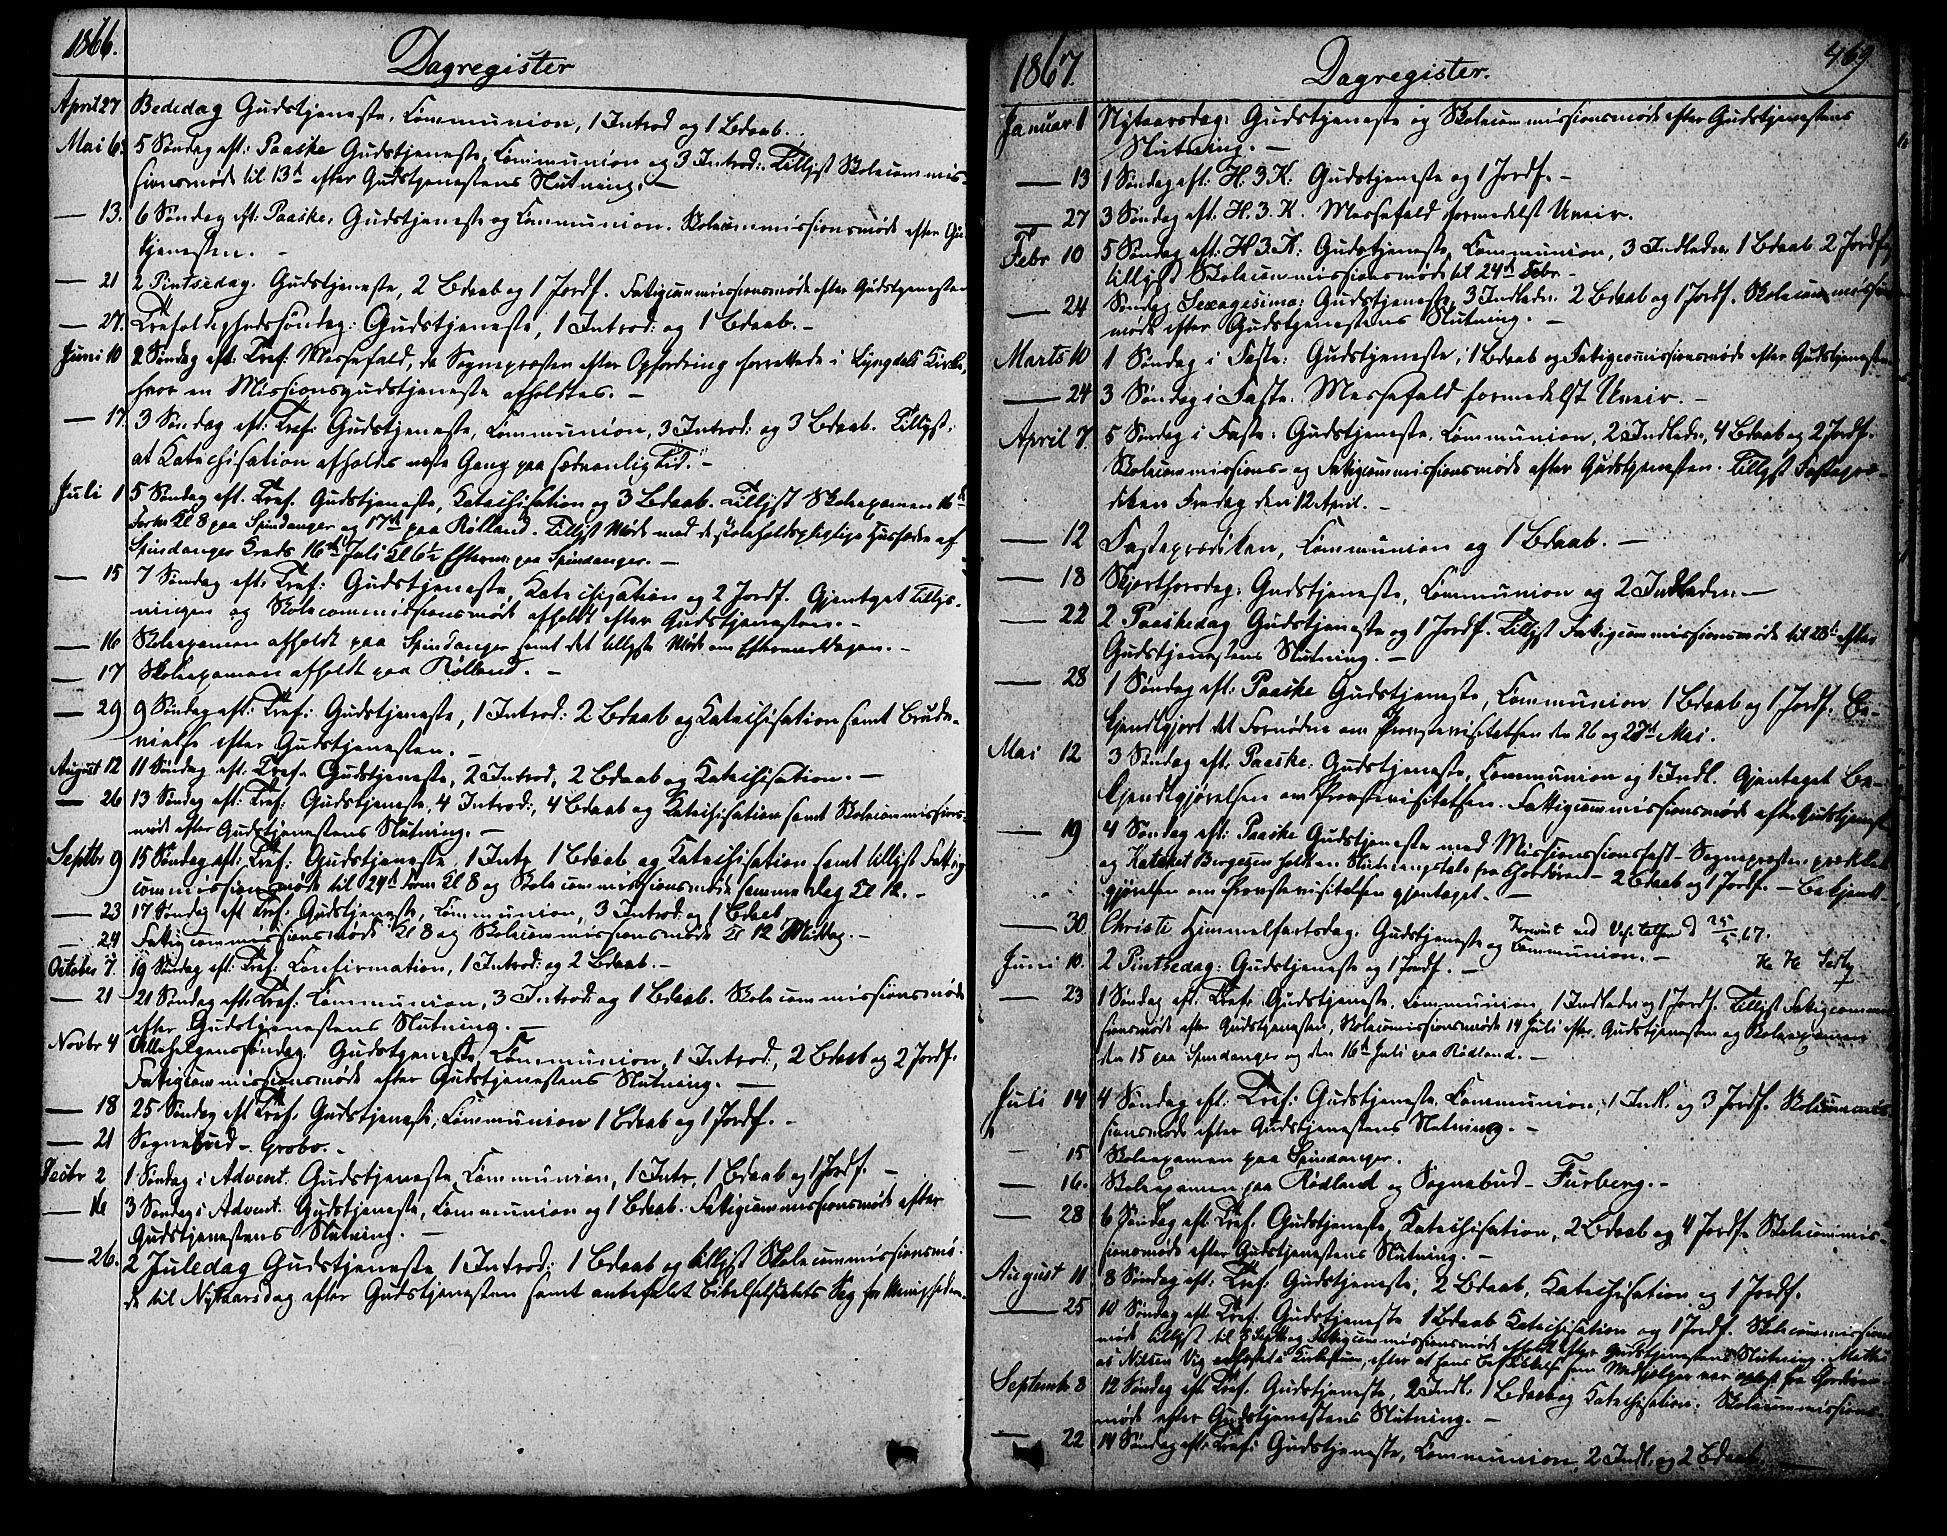 1866.
Dagregister
April 27 Bededag Gudstjeneste, Communion, 1 Introd og 1 Bdaab.
Mai 6. 5 Søndag eft: Paaske Gudstjeneste, Communion og 3 Introd: Tillyst Skolecommis-
sionsmøde til 13de efter Gudstjenestens Slutning. –
— 13. 6 Søndag eft. Paaske. Gudstjeneste og Communion. Skolecommissionsmøde efter Gu
tjenesten. –
— 21 2 Pintsedag. Gudstjeneste, 2 Bdaab og 1 Jordf. Fattigcommissionsmøde efter Gudstjenesten
— 27. Trefoldighedssøndag: Gudstjeneste, 1 Introd: og 1 Bdaab. –
Juni 10 2 Søndag eft: Tref: Messefald, da Sognepresten efter Opfordring forrettede i Lyngdals Kirke,
hvor en Missionsgudstjeneste afholdtes. –
— 17. 3 Søndag eft: Tref: Gudstjeneste, Communion, 3 Introd: og 3 Bdaab. Tillyst:
at Katechisation afholdes næste Gang paa sædvanlig Tid. –
Juli 1 5 Søndag eft. Tref. Gudstjeneste, Katechisation og 3 Bdaab. Tillyst Skoleexamen 16de
Form Kl 8 paa Spindanger og 17de paa Rølland. Tillyst Møde med de skoleholdspligtige Husfædre af
Spindanger Kreds 16de Juli Kl 6½ Efterm paa Spindanger. –
— 15 7 Søndag eft: Tref: Gudstjeneste, Katechisation og 2 Jordf. Gjentaget Tillys-
ningen og Skolecommissionsmøde afholdt efter Gudstjenesten. –
— 16 Skoleexamen afholdt paa Spindanger samt det tillyste Møde om Eftermiddagen. –
— 17 Skoleexamen afholdt paa Rølland. –
— 29 9 Søndag eft: Tref: Gudstjeneste, 1 Introd: 2 Bdaab og Katechisation samt Brude-
vielse efter Gudstjenesten. –
August 12 11 Søndag eft. Tref. Gudstjeneste, 2 Introd, 2 Bdaab og Katechisation. –
— 26 13 Søndag eft: Tref: Gudstjeneste, 4 Introd:, 4 Bdaab og Katechisation samt Skolecommissions-
møde efter Gudstjenestens Slutning. –
Septbr 9 15 Søndag eft: Tref: Gudstjeneste, 1 Intr. 1 Bdaab og Katechisation samt tillyst Fattig
commissionsmøde til 24de Form Kl 8 og Skolecommissionsmøde samme Dag Kl 12. –
— 23 17 Søndag eft Tref. Gudstjeneste, Communion, 3 Introd: og 1 Bdaab
— 24 Fattigcommissionsmøde Kl 8 og Skolecommissionsmøde Kl 12 Middag. –
October 7. 19 Søndag eft: Tref: Confirmation, 1 Introd: og 2 Bdaab. –
— 21 21 Søndag eft: Tref: Communion, 3 Introd: og 1 Bdaab. Skolecommissionsmøde
efter Gudstjenestens Slutning. –
Novbr 4 Allehelgenssøndag. Gudstjeneste, Communion, 1 Introd:, 2 Bdaab og 2 Jordf.
Fattigcommissionsmøde efter Gudstjenestens Slutning. —
— 18 25 Søndag eft Tref. Gudstjeneste, Communion 1 Bdaab og 1 Jordf. –
— 21 Sognebud – Grobo. –
Decbr 2 1 Søndag i Advent. Gudstjeneste, Communion, 1 Intr, 1 Bdaab og 1 Jordf. –
— 16 3 Søndag i Advent: Gudstjeneste, Communion og 1 Bdaab. Fattigcommissionsmøde efter
Gudstjenestens Slutning. –
— 26. 2 Juledag Gudstjeneste 1 Introd: 1 Bdaab og tillyst Skolecommissionsmø-
de til Nytaarsdag efter Gudstjenesten samt anbefalet Bibelselskabets Sag for Menigheden.
1867.
Dagregister.
469
Januar 1 Nytaarsdag: Gudstjeneste og Skolecommissionsmøde efter Gudstjenestens
Slutning. –
— 13 1 Søndag eft: H. 3 K: Gudstjeneste og 1 Jordf. –
— 27 3 Søndag eft: H. 3. K. Messefald formedelst Uveir.
Febr 10 5 Søndag eft: H 3 K: Gudstjeneste, Communion, 3 Indleden 1 Bdaab 2 Jordf,
tillyst Skolecommissionsmøde til 24de Febr –
— 24 Søndag Sexagesima: Gudstjeneste, 3 Indleden 2 Bdaab og 1 Jordf. Skolecommissions
møde efter Gudstjenestens Slutning. –
Marts 10 1 Søndag i Faste: Gudstjeneste, 1 Bdaab og Fattigcommissionsmøde efter Gudstjenesten
— 24 3 Søndag i Faste. Messefald formedelst Uveir. –
April 7. 5 Søndag i Faste: Gudstjeneste, Communion, 2 Indleden, 4 Bdaab og 2 Jordf.
Skolecommissions- og Fattigcommissionsmøde efter Gudstjenesten. Tillyst Fastepræ-
diken Fredag den 12 April. –
— 12 Fasteprædiken, Communion og 1 Bdaab. –
— 18 Skjærthorsdag: Gudstjeneste, Communion og 2 Indleden. –
— 22 2 Paaskedag Gudstjeneste og 1 Jordf. Tillyst Fattigcommissionsmøde til 28de efter
Gudstjenestens Slutning. –
— 28 1 Søndag eft: Paaske Gudstjeneste, Communion 1 Bdaab og 1 Jordf. Be-
kjendtgjort det Fornødne om Provstevisitatsen den 26 og 27de Mai.
Mai 12 3 Søndag eft. Paaske: Gudstjeneste, Communion og 1 Indl. Gjentaget Be-
kjendtgjørelsen om Provstevisitatsen. Fattigcommissionsmøde efter Gudstjenest
— 19 4 Søndag eft: Paaske Gudstjeneste med Missionsfest – Sognepresten prækede
og Kateket Børgesen holdt en Slutningstale fra Chordøren – 2 Bdaab og 1 Jordf. – Bekjendt-
gjørelsen om Provstevisitatsen gjentaget. –
— 30 Christi Himmelfartsdag. Gudstjeneste og Communion. –
Forevist ved Visitatsen d 25/5 67.
Juni 10. 2 Pintsedag: Gudstjeneste og 1 Jordf. –
— 23 1 Søndag eft. Tref: Gudstjeneste, Communion, 1 Indleden og 1 Jordf. Tillyst Fattigcommis
sionsmøde efter Gudstjenesten, Skolecommissionsmøde 14 Juli efter Gudstjenesten og Skoleexamen
den 15 paa Spindanger og den 16de Juli paa Rødland. –
Juli 14 4 Søndag eft. Tref: Gudstjeneste, Communion, 1 Indl. og 3 Jordf. Skolecommis
sionsmøde efter Gudstjenestens Slutning. –
— 15 Skoleexamen paa Spindanger.
— 16. Skoleexamen paa Rødland og Sognebud – Furberg. –
— 28 6 Søndag eft Tref. Gudstjeneste, Katechisation, 2 Bdaab og 4 Jordf. Skolecommis-
sionsmøde efter Gudstjenestens Slutning. –
August 11 8 Søndag eft: Tref: Gudstjeneste, 2 Bdaab, Katechisation og 1 Jordf.
— 25 10 Søndag eft Tref: Gudstjeneste 1 Bdaab Katechisation og 1 Jordf. Skolecommissions
møde tillyst til 8 Septb og Fattigcommissionsmøde afholdt efter Gudstjenestens Slutning.
Nilsen Vig efter at hans Beskikkelse som Medhjelper var oplæst fra Chordøren
Septemb 8 12 Søndag eft Tref. Gudstjeneste, 2 Indl. 1 Bdaab og Katechisation. Skolecommissions-
møde efter Gudstjenestens Slutning. –
— 22 14 Søndag eft: Tref: Gudstjeneste, Communion, 2 Indl. og 2 Bdaab —